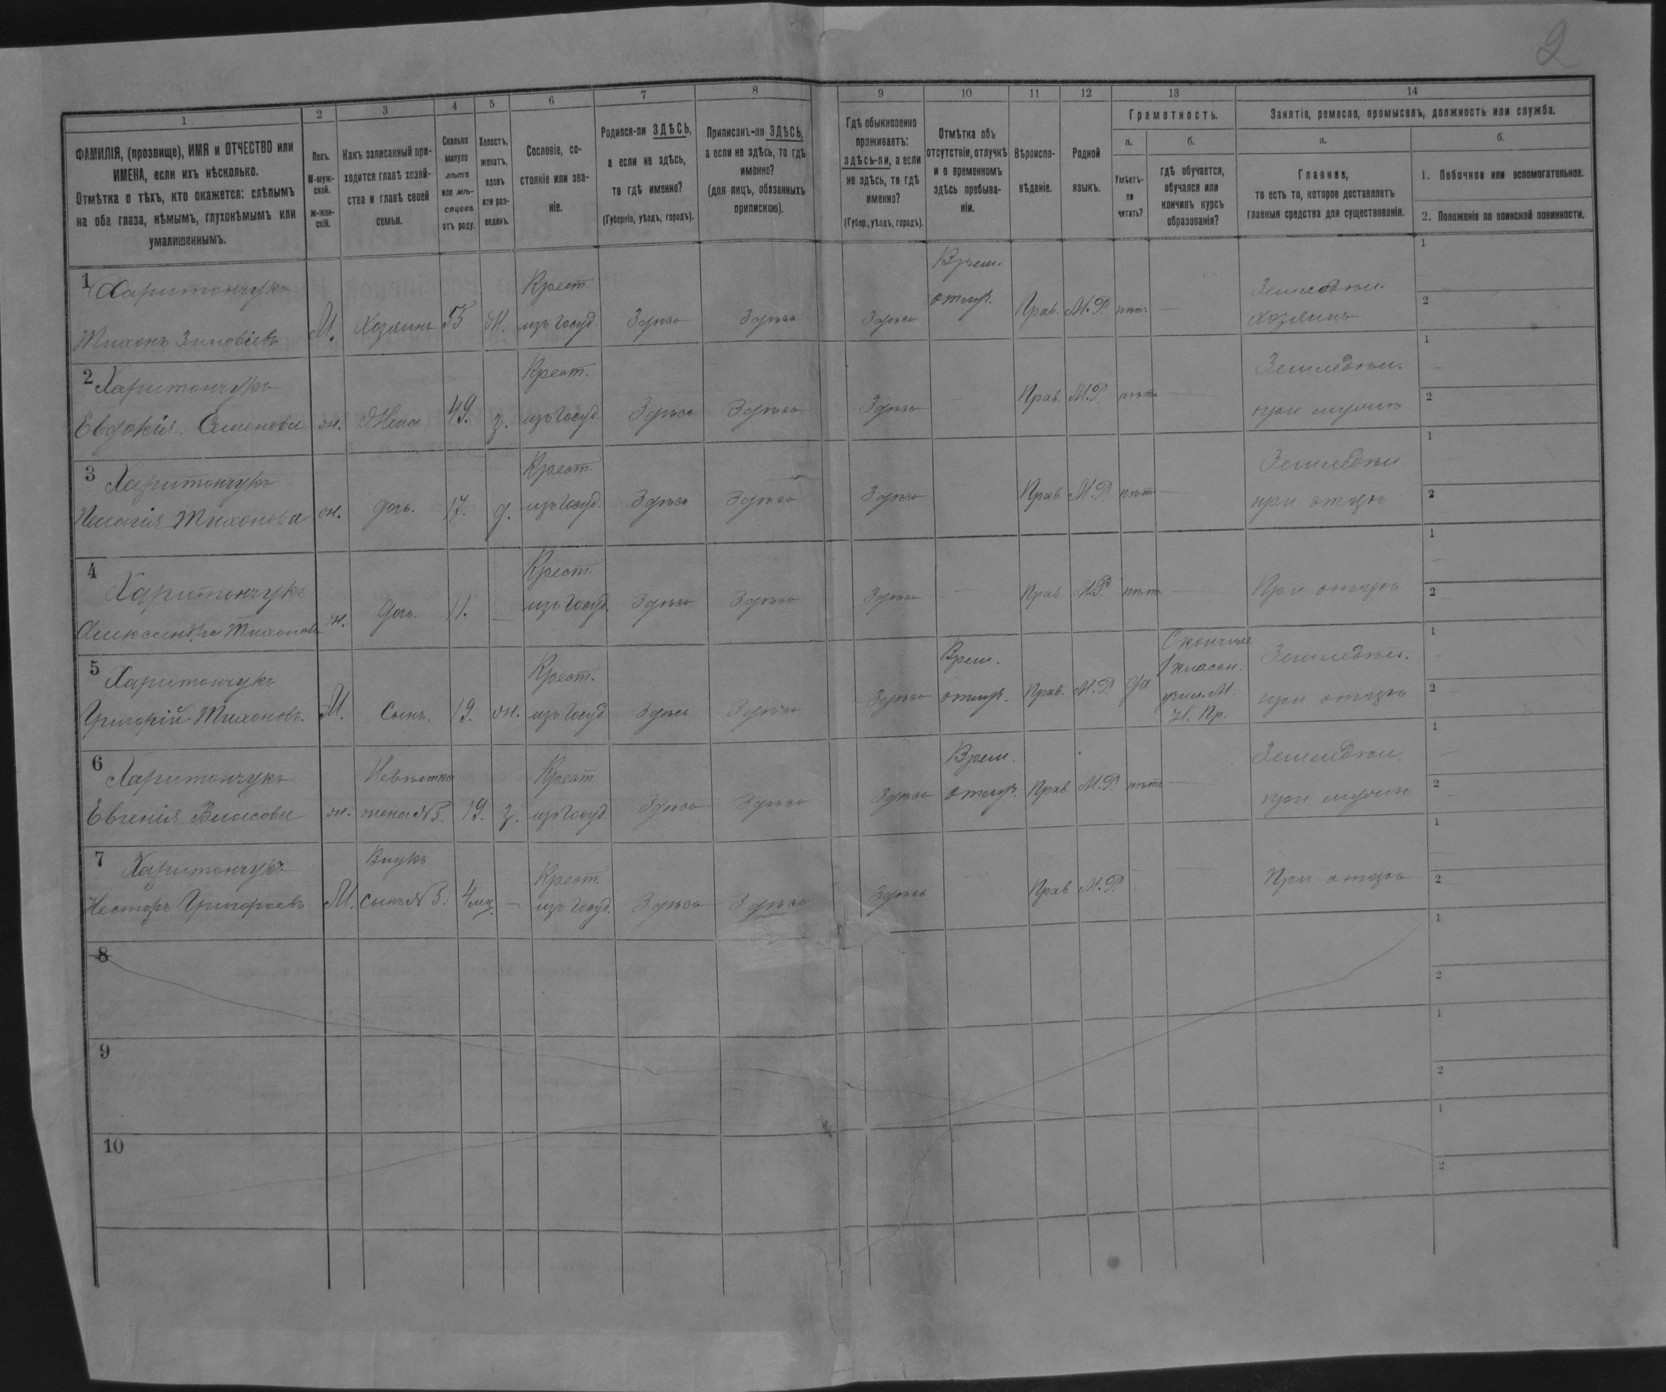 2
1
2
3
4
5
6
7
8
9
10
11
12
13
14
ФАМИЛІЯ, (прозвище), ИМЯ и ОТЧЕСТВО или
ИМЕНА, если ихъ нѣсколько.
Отмѣтка о тѣхъ, кто окажется: слѣпымъ
на оба глаза, нѣмымъ, глухонѣмымъ или
умалишеннымъ.
Полъ.
М-муж-
ской.
Ж-жен-
скій.
Какъ записанный при-
ходится главѣ хозяй-
ства и главѣ своей
семьи.
Сколько
минуло
лѣтъ
или мѣ-
сяцевъ
отъ роду.
Холостъ,
женатъ,
вдовъ
или раз-
веденъ.
Сословіе, со-
стояніе или зва-
ніе.
Родился-ли ЗДѢСЬ,
а если не здѣсь,
то гдѣ именно?
(Губернія, уѣздъ, городъ).
Приписанъ-ли ЗДѢСЬ,
а если не здѣсь, то гдѣ
именно?
(для лицъ, обязанныхъ
припискою).
Гдѣ обыкновенно
проживаетъ:
здѣсь-ли, а если
не здѣсь, то гдѣ
именно?
(Губер., уѣздъ, городъ).
Отмѣтка объ
отсутствіи, отлучкѣ
и о временномъ
здѣсь пребыва-
ніи.
Вѣроиспо-
вѣданіе.
Родной
языкъ.
Грамотность.
а.
Умѣетъ-
ли
читать?
б.
гдѣ обучается,
обучался или
кончилъ курсъ
образованія?
Занятіе, ремесло, промыселъ, должность или служба.
а.
Главное,
то есть то, которое доставляетъ
главныя средства для существованія.
б.
1. Побочное или вспомогательное.
2. Положеніе по воинской повинности.
1 Харитончукъ
Тихонъ Зиновіевъ
М. Хозяинъ 55 Ж.
Крест.
изъ госуд.
Здѣсь Здѣсь Здѣсь
Врем.
отлуч.
Прав. М.Р. нѣтъ —
Земледѣл.
хозяинъ
1
2
2 Харитончукъ
Евдокія Семенова
ж. Жена 49. з.
Крест.
изъ госуд.
Здѣсь Здѣсь Здѣсь — Прав. М.Р. нѣтъ —
Земледѣл.
при мужѣ
1
2
3 Харитончукъ
Пелагія Тихонова
ж. дочь. 17. д.
Крест.
изъ госуд.
Здѣсь Здѣсь Здѣсь — Прав. М.Р. нѣтъ —
Земледѣл
при отцѣ
1
2
4 Харитончукъ
Александра Тихонова
ж. дочь. 11. —
Крест.
изъ госуд.
Здѣсь Здѣсь Здѣсь — Прав М.Р. нѣтъ —
При отцѣ
1
2
5 Харитончукъ
Григорій Тихоновъ.
М. Сынъ. 19. ж.
Крест.
изъ госуд
Здѣсь Здѣсь Здѣсь
Врем.
отлуч.
Прав. М.Р. да
учил. М.
Н. Пр.
Земледѣл.
при отцѣ
1
2
6 Харитончукъ
Евгенія Власова
ж.
Невѣстка
жена №5. 19. з.
Крест
изъ госуд
Здѣсь Здѣсь Здѣсь
Врем.
отлуч.
Прав. М.Р. нѣтъ —
Земледѣл.
при мужѣ
1
2
7 Харитончукъ
Несторъ Григорьевъ
М.
Внукъ
сынъ №5. 4 мц. —
Крест.
изъ госуд.
Здѣсь Здѣсь Здѣсь — Прав М.Р. — —
При отцѣ
1
2
8
1
2
9
1
2
10
1
2